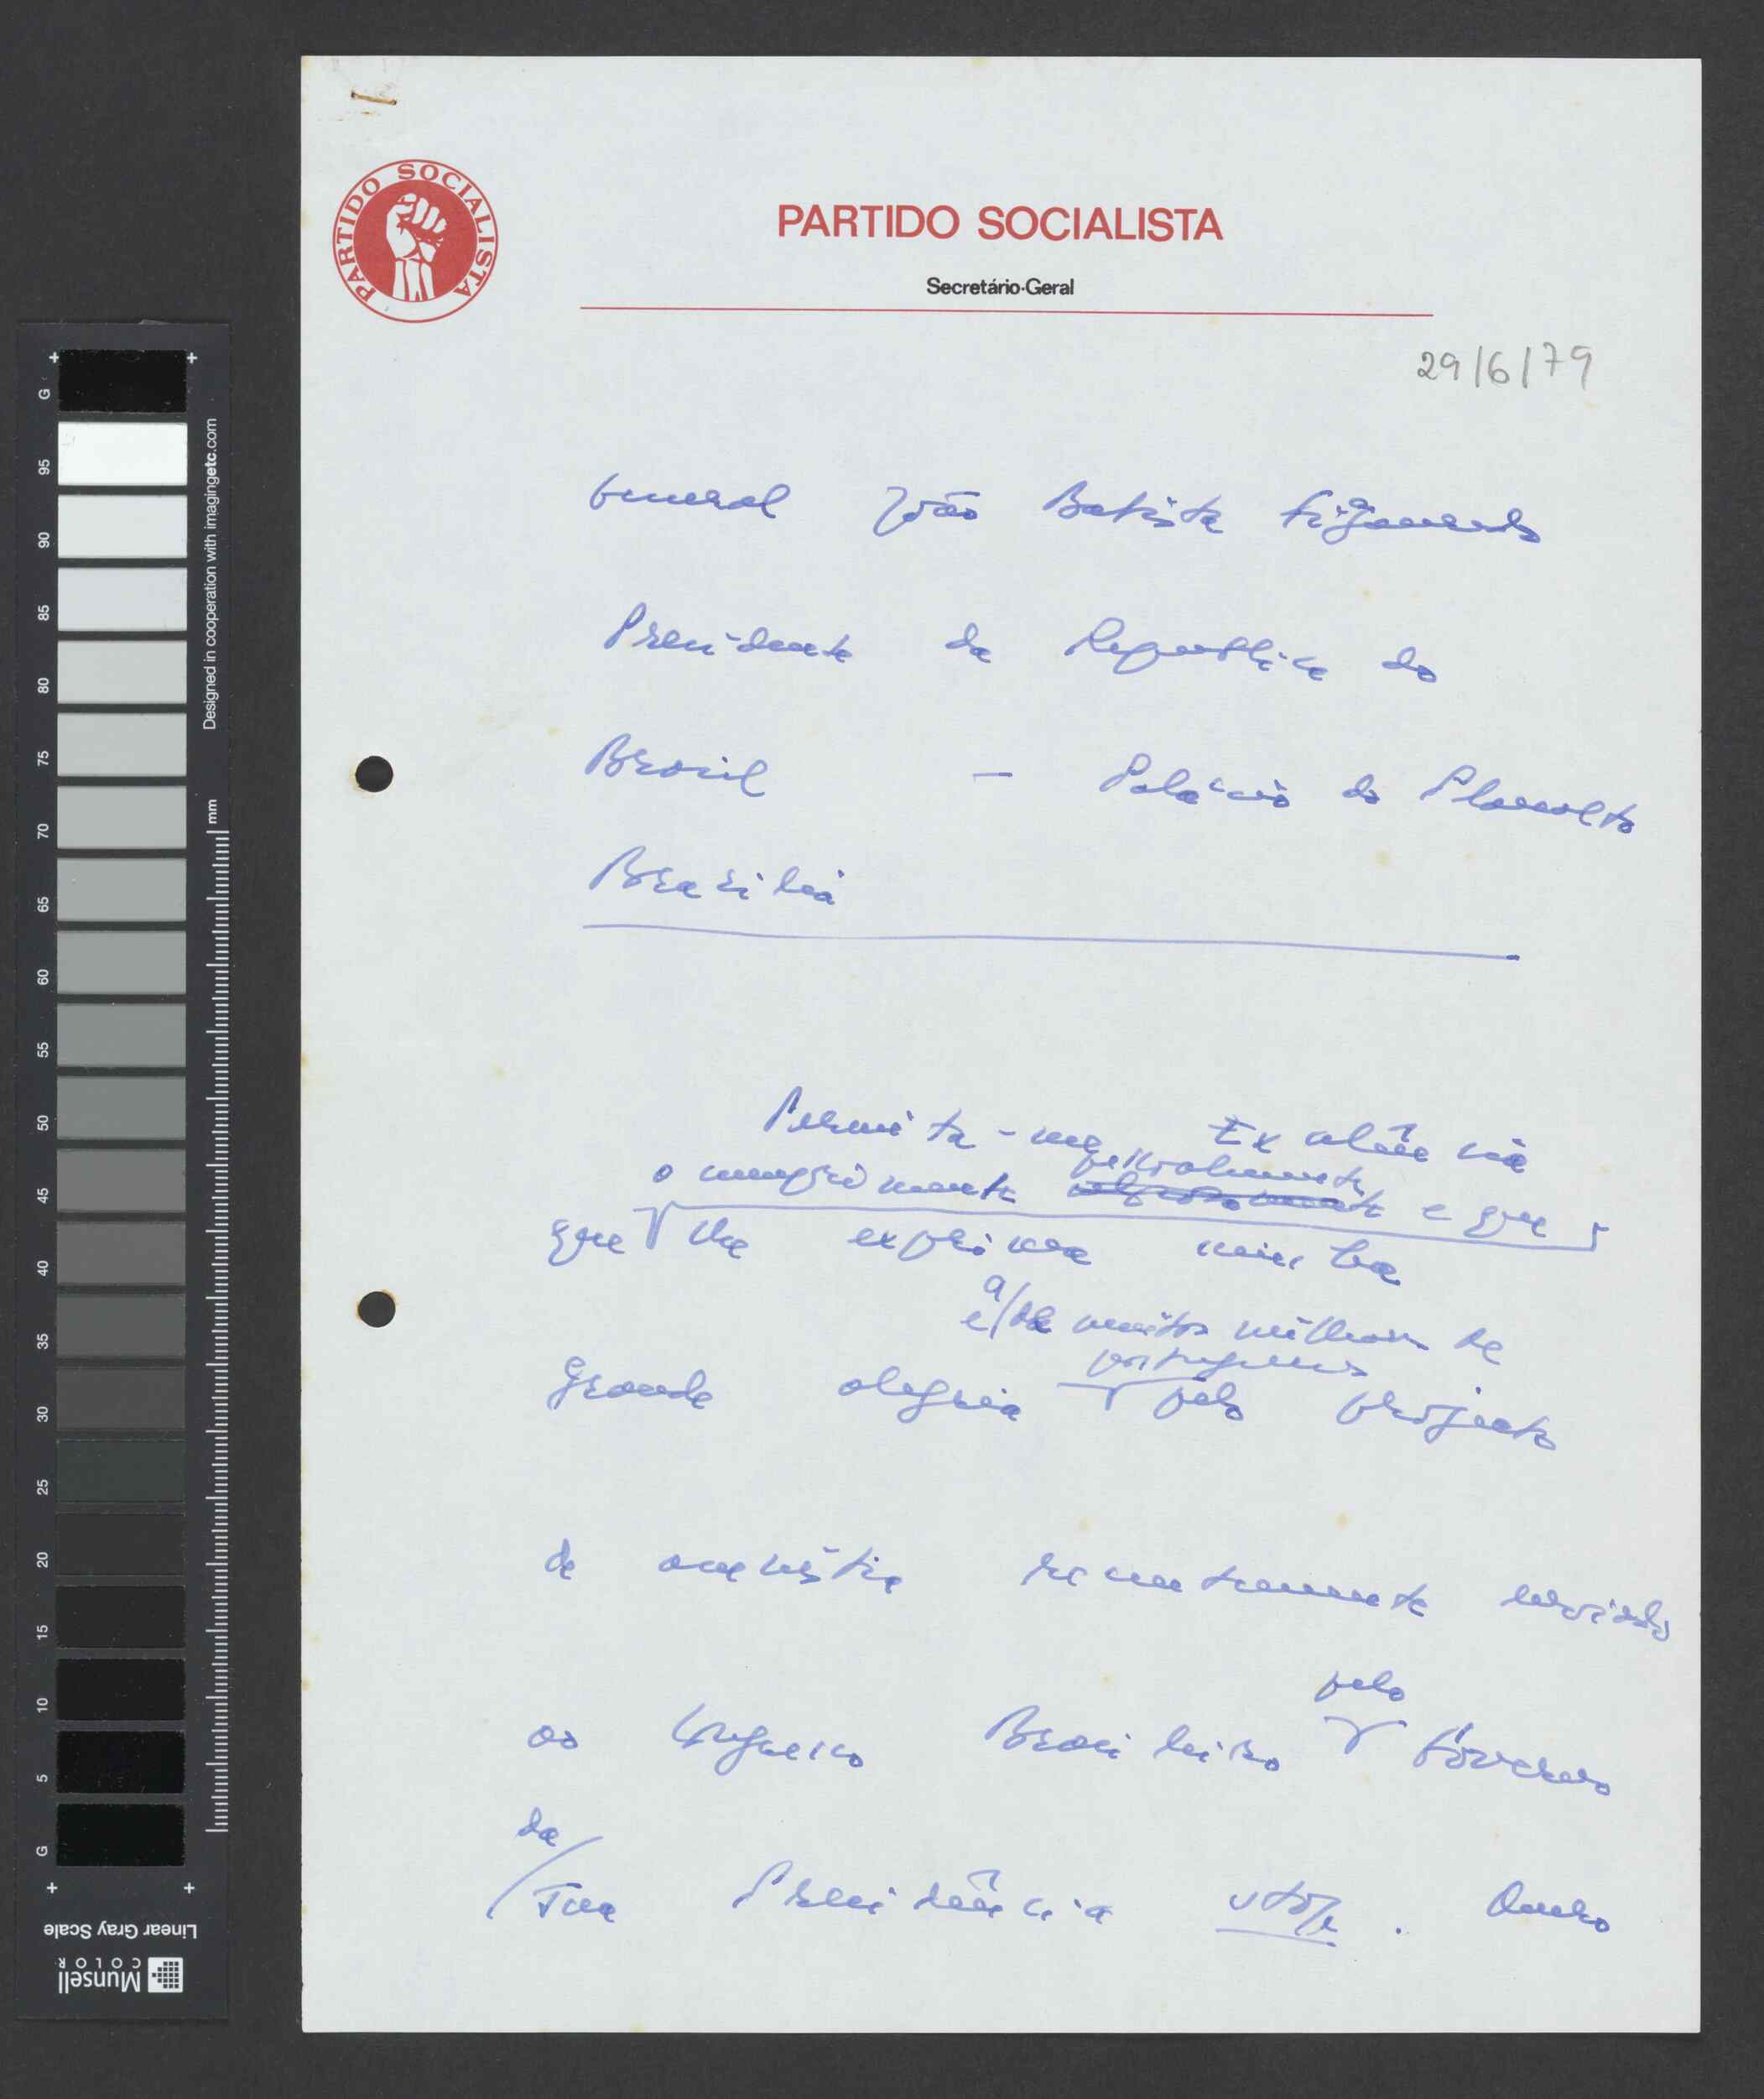 PARTIDO SOCIALISTA
PARTIDO SOCIALISTA
Secretário-Geral
29/6/79
General João Batista Figueiredo
Presidente da Republica do
Brasil — Palácio do Planalto
Brasilia
Permita-me Excelência
o cumprimente pessoalmente e que
que lhe exprima minha
e/a de muitos milhões de
portugueses
grande alegria pelo projecto
de amnistia recentemente enviado
ao Congresso Brasileiro pelo Governo
da
Sua Presidência stop. Quero
G 95 90 85 80 75 70 65 60 55 50 45 40 35 30 25 20 15 10 5 G
mm
Designed in cooperation with imagingetc.com
Linear Gray Scale
Munsell
COLOR